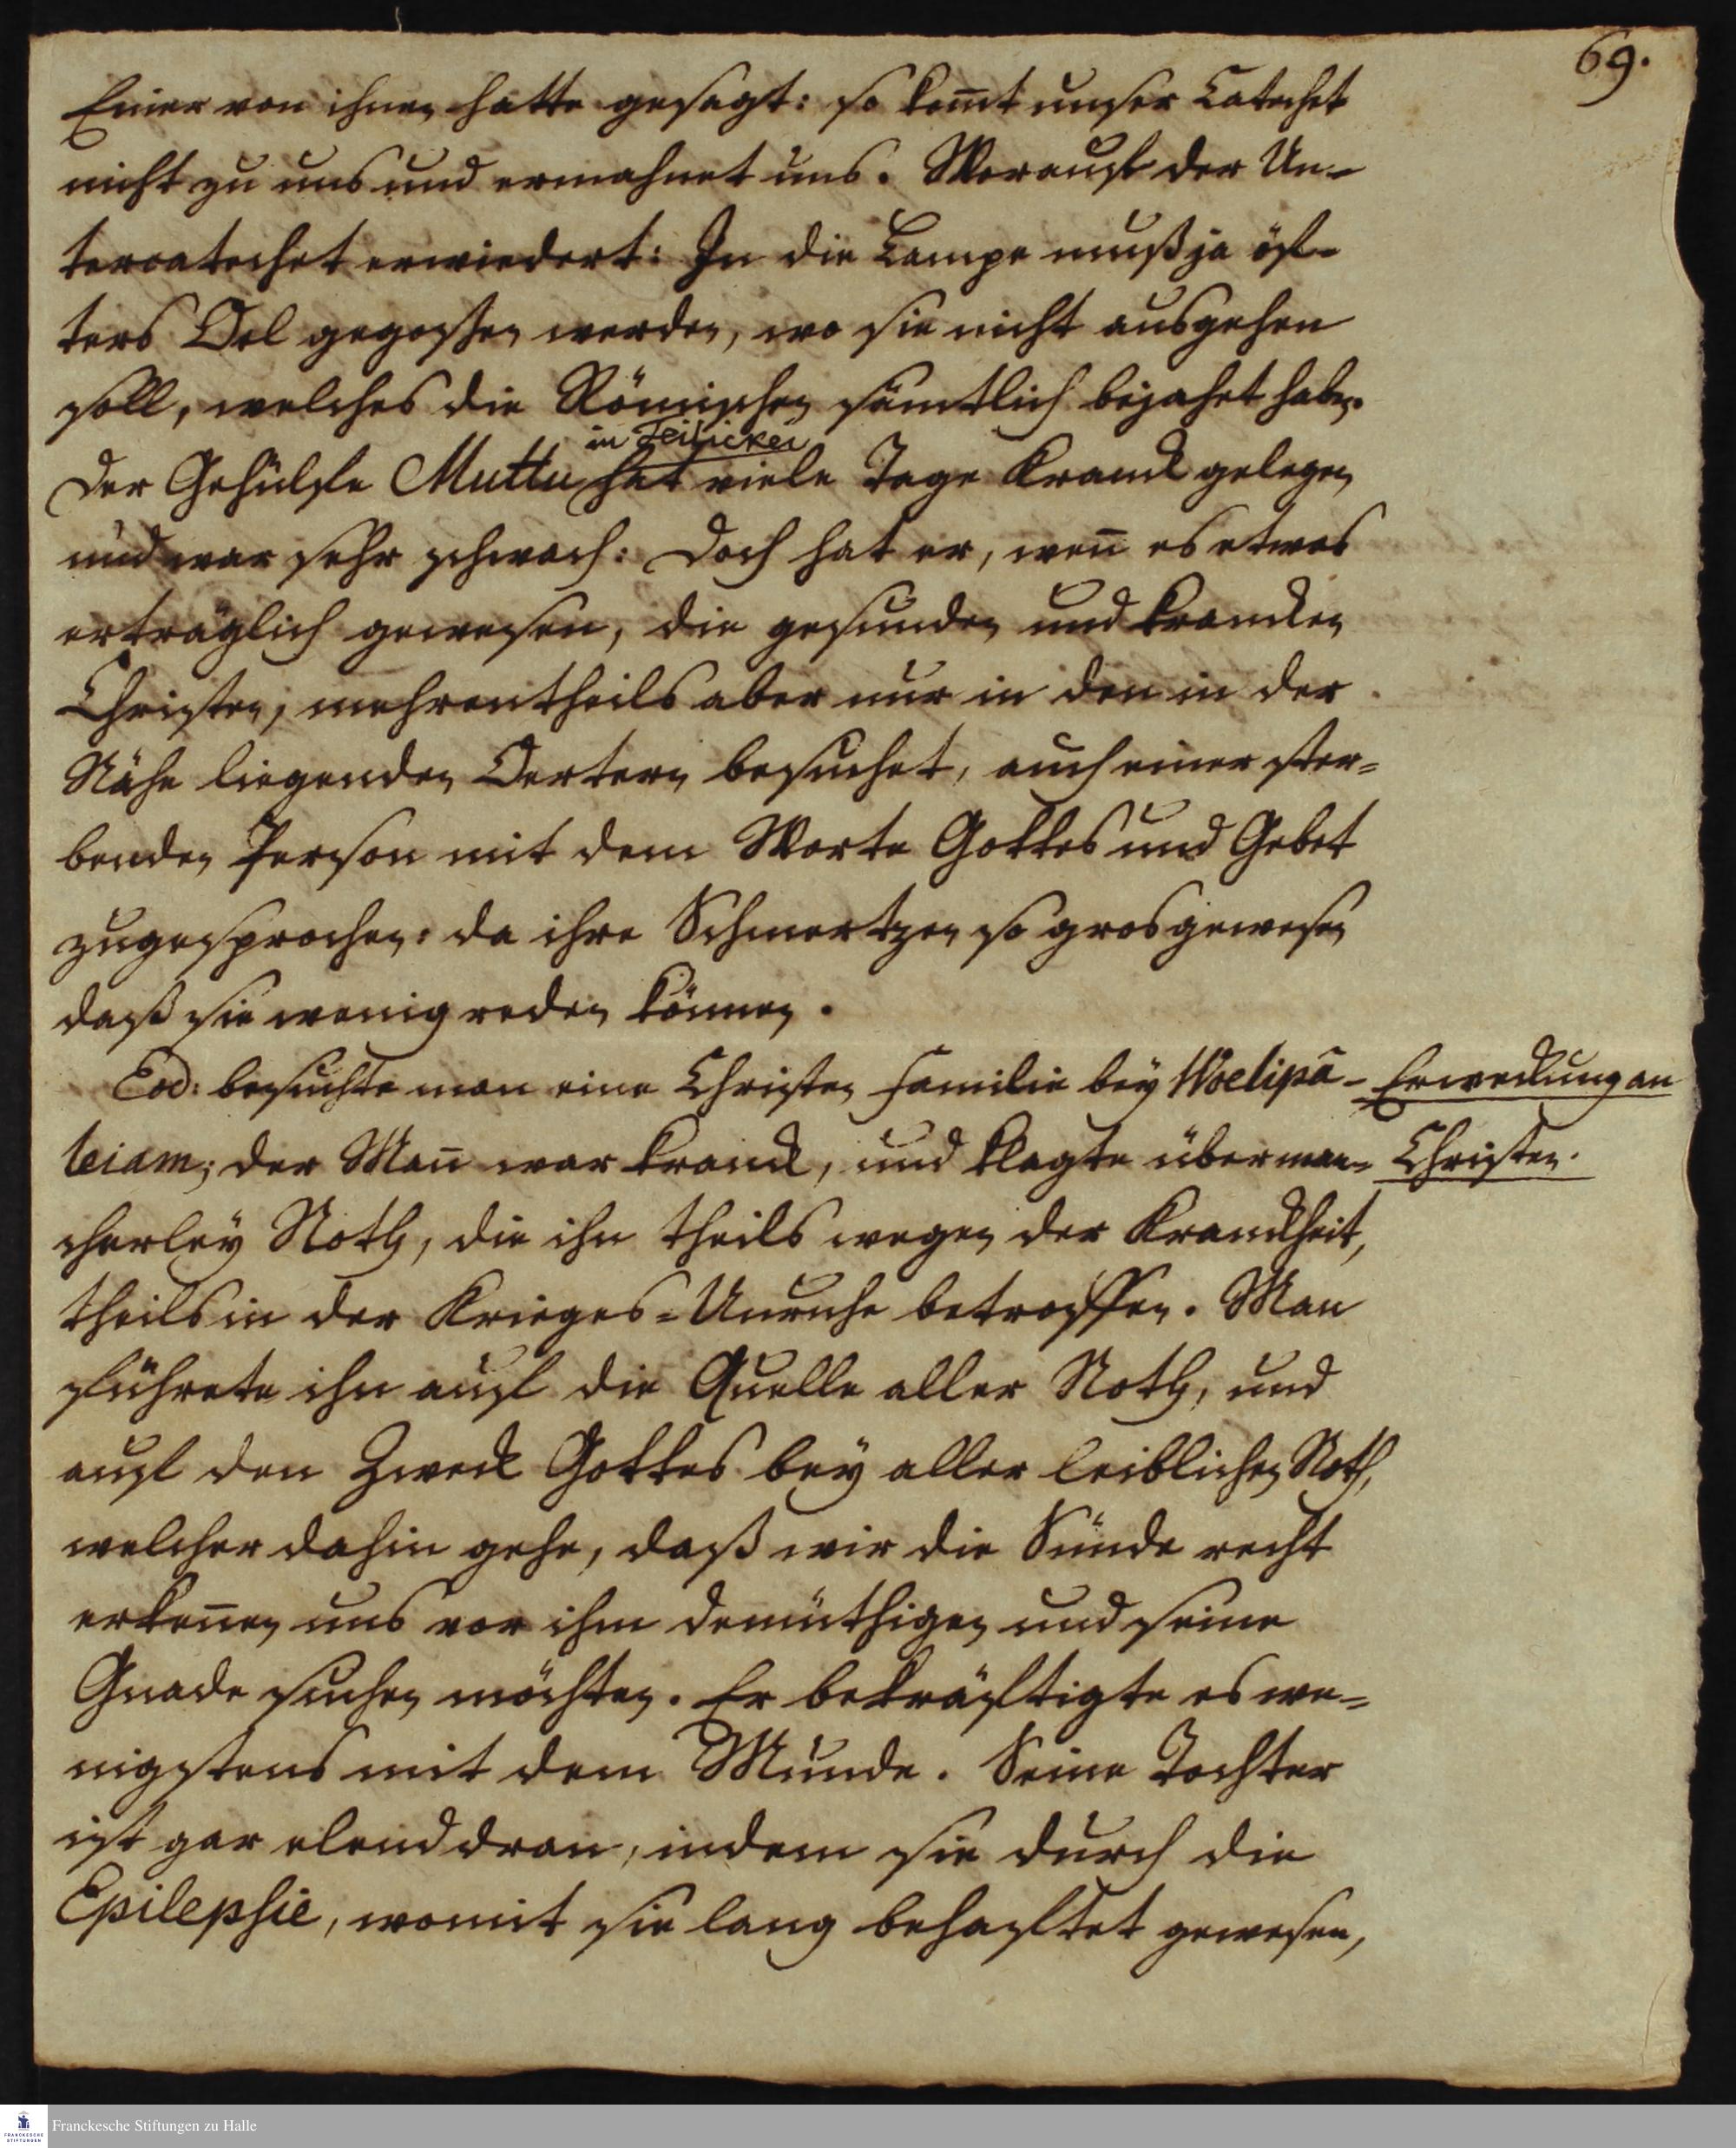 69.
Einer von ihnen hatte gesagt: so kom̄t unser Catechet
nicht zu uns und ermahnet uns. Worauf der Un-
tercatechet erwiedert: In die Lampe muß ja öf-
ters Oel gegossen werden, wo sie nicht ausgehen
soll, welches die Römischen sämtlich bejahet haben.
in Teilickei
Der Gehülfe Muttu hat viele Tage Kranck gelegen
und war sehr schwach: Doch hat er, wen̄ es etwas
erträglich gewesen, die gesunden und krancken
Christen, mehrentheils aber nur in den in der
Nähe liegenden Oertern besuchet, auch einer ster-
benden Person mit dem Worte Gottes und Gebet
zugesprochen: da ihre Schmertzen so gros gewesen
daß sie wenig reden können.
Eod: besuchte man eine Christen Familie bey Woelipā-
leiam; der Man̄ war kranck, und klagte über man-
Erweckung an
Christen.
cherley Noth, die ihn theils wegen der Kranckheit,
theils in der Krieges-Unruhe betroffen. Man
führete ihn auf die Quelle aller Noth, und
auf den Zweck Gottes bey aller leiblichen Noth,
welcher dahin gehe, daß wir die Sünde recht
erken̄en uns vor ihm demüthigen und seine
Gnade suchen möchten. Er bekräftigte es we-
nigstens mit dem Munde. Seine Tochter
ist gar elend dran, indem sie durch die
Epilepsie, womit sie lang behaftet gewesen,
Franckesche Stiftungen zu Halle
FRANCKESCHE
STIFTUNGEN